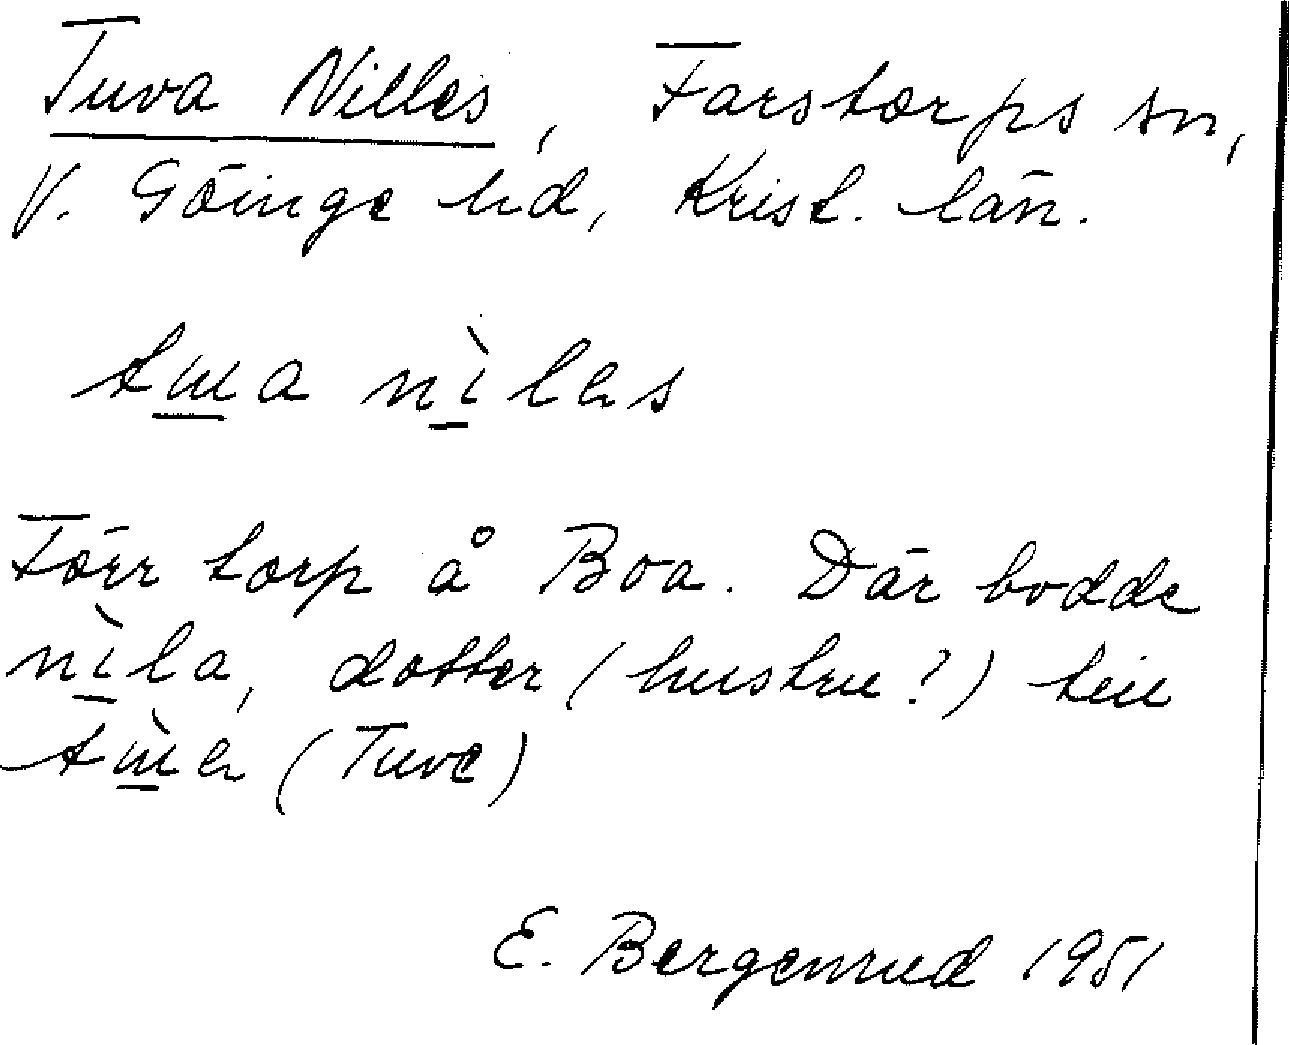 Tuva Nilles, Farstorps sn,
V. Göinge hd, Krist. län.
nìləs
Förr torp å Boa. Där bodde
nìla, dotter (hustru?) till
(Tuve)
E. Bergenrud 1951